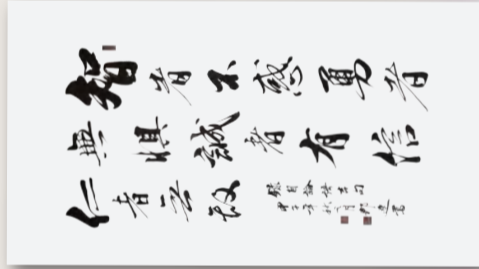 智者不惑勇者
無惧誠者有信
仁者无敌